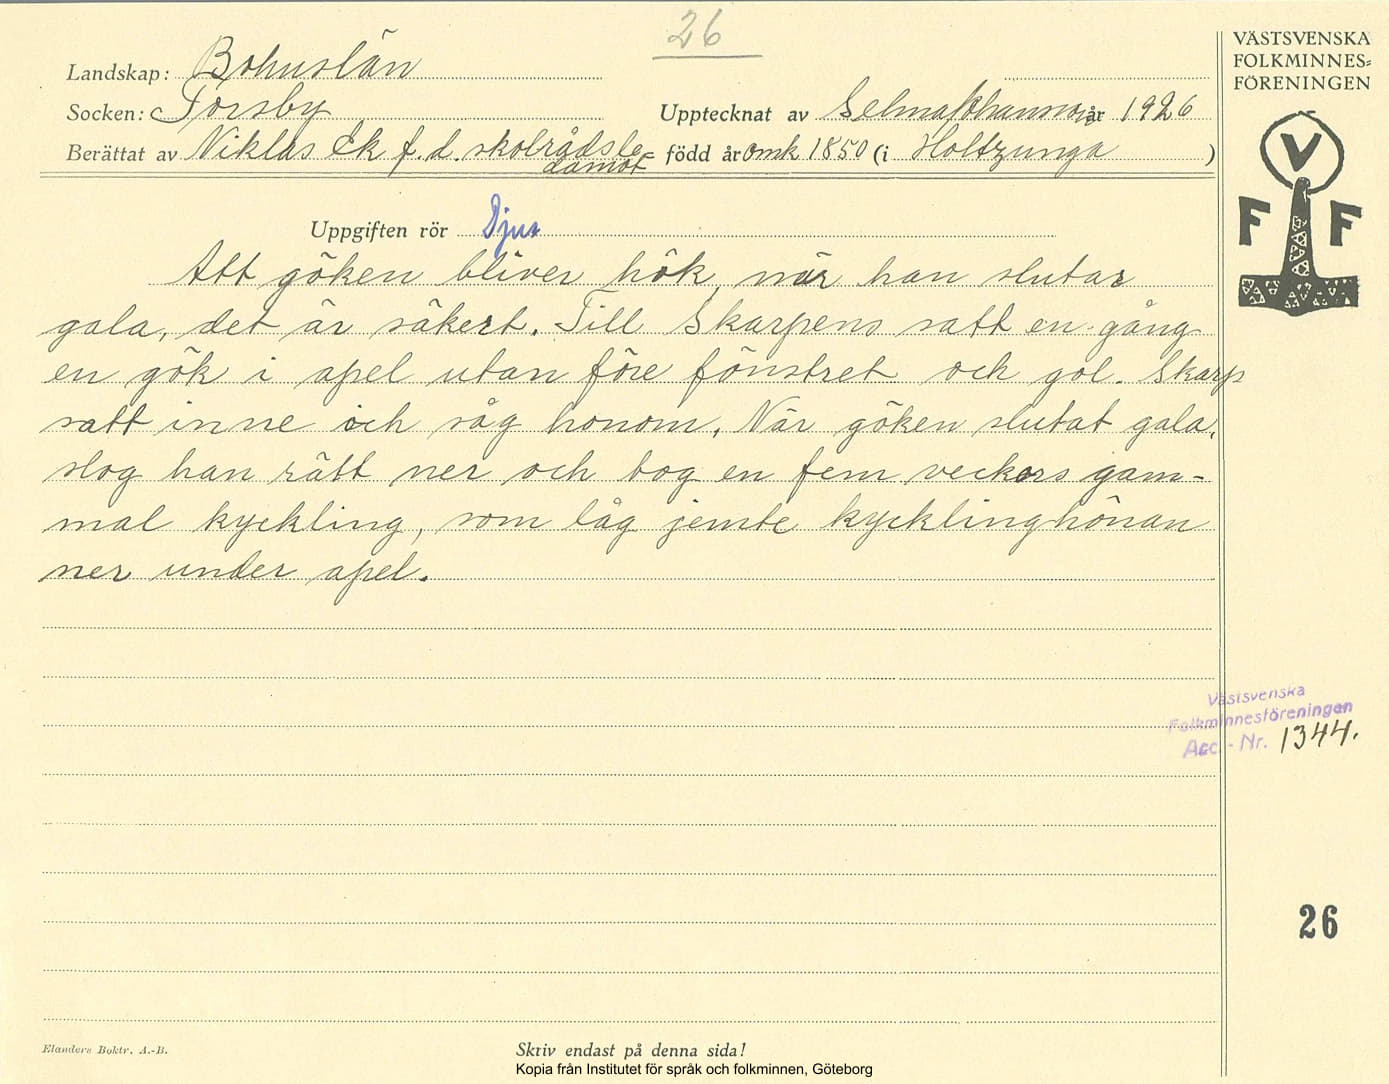 26
VÄSTSVENSKA
FOLKMINNES=
FÖRENINGEN
Landskap: Bohuslän
Socken: Torsby Upptecknat av Selma Johansson år 1926
Berättat av Niklas Ek f.d. skolrådsle= född år omk 1850 (i Holtzunga )
damot
V
F F
Uppgiften rör Djur
Att göken bliver hök, när han slutar
gala, det är säkert. Till Skarpens satt en gång
en gök i apel utan före fönstret och gol. Skarp
satt inne och såg honom. När göken slutat gala,
slog han rätt ner och tog en fem veckors gam-
mal kyckling, som låg jemte kycklinghönan
ner under apel.
Västsvenska
Folkminnesföreningen
Acc.-Nr. 1344.
26
Elanders Boktr. A.-B.
Skriv endast på denna sida!
Kopia från Institutet för språk och folkminnen, Göteborg